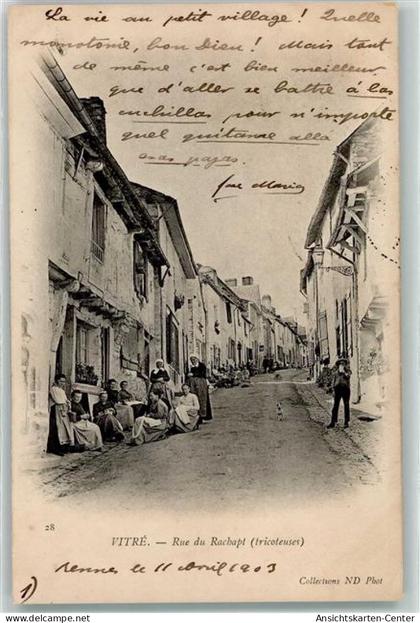 La vie au petit village! Quelle
monotonie, bon Dieu! Mais tout
de même c'est bien meilleur
que d'aller se battre à las
cuchillas pour n'importe
quel quitanda allá
esos pajas
28
VITRÉ. — Rue du Rachapt (tricoteuses)
Rennes le 11 avril 903
Collections ND Phot
1)
Ansichtskarten-Center